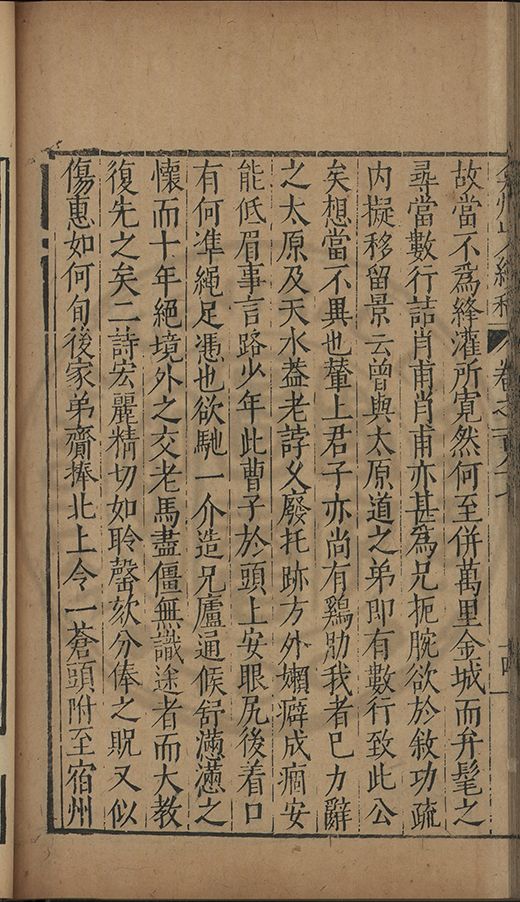 弇州山人續稿 卷之一百八十七 十四
故當不爲絳灌所寬然何至併萬里金城而弁髦之
尋當數行詰肖甫肖甫亦甚爲兄扼腕欲於敘功疏
内擬移留景云曾與太原道之弟即有數行致此公
矣想當不異也輦上君子亦尚有鷄肋我者巳力辭
之太原及天水葢老誖乆廢托跡方外嬾癖成痼安
能低眉事言路少年此曹子於頭上安眼尻後着口
有何凖繩足憑也欲馳一介造兄廬通候舒懣懣之
懷而十年絕境外之交老馬盡僵無識途者而大教
復先之矣二詩宏麗精切如聆謦欬分俸之貺又似
傷惠如何旬後家弟齎捧北上令一蒼頭附至宿州